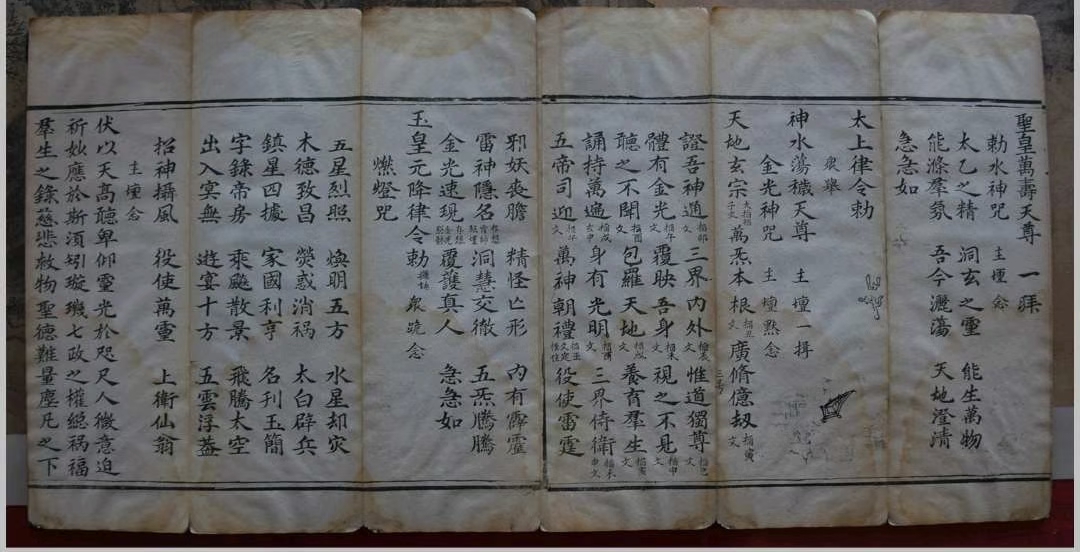 聖皇萬壽天尊 一拜
勅水神咒 主壇念
太乙之精 洞玄之靈 能生萬物
能滌羣氛 吾今灑蕩 天地澄清
急急如
太上律令勅
衆舉
神水蕩穢天尊 主壇一揖
金光神咒 主壇默念
天地玄宗 大指掐子文 萬炁本根 掐丑文 廣脩億刼 掐寅文
證吾神通 掐卯文 三界內外 掐辰文 惟道獨尊 掐巳文
體有金光 掐午文 覆映吾身 掐未文 視之不見 掐申文
聽之不聞 掐酉文 包羅天地 掐戌文 養育羣生 文
誦持萬遍 文 身有光明 文 三界侍衛 文
五帝司迎 文 萬神朝禮 役使雷霆
邪妖喪膽 精怪亡形 內有霹靂
雷神隱名 洞慧交徹 五炁騰騰
金光速現 覆護真人 急急如
玉皇元降律令勅 衆跪念
燃燈咒
五星烈照 煥明五方 水星却灾
木德致昌 熒惑消禍 太白辟兵
鎮星四據 家國利亨 名刊玉簡
字錄帝房 乘飈散景 飛騰太空
出入冥無 遊宴十方 五雲浮葢
招神攝風 役使萬靈 上衛仙翁
主壇念
伏以天高聽卑仰靈光於咫尺人微意迫
祈妙應於斯須矧璇璣七政之權緫禍福
羣生之錄慈悲救物聖德難量塵凡之下